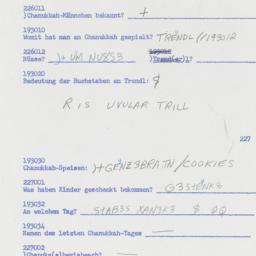 226011
)Chanukkah-Männchen bekannt? +
193010
Womit hat man an Chanukkah gespielt? TRENDL//193012
226012
Nüsse? )+ UM NU8S3
193020
Bedeutung der Buchstaben am Trundl: $
R IS UVULAR TRILL
227
193030
Chanukkah-Speisen: )+GENZ3BRATN/COOKIES
227001
Was haben Kinder geschenkt bekommen? G3STENKS
193032
An welchem Tag? STAB3S XAN3KS $ QQ
193034
Namen des letzten Chanukkah-Tages
227002